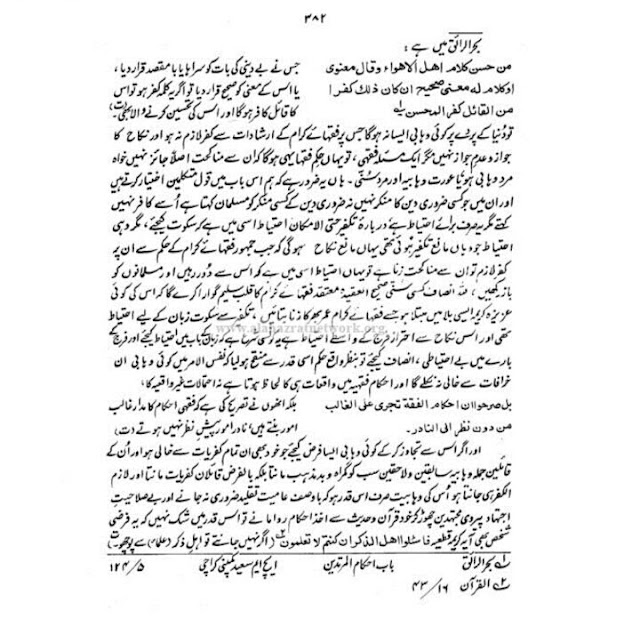 ۳۸۲
بحرالرائق میں ہے :
من حسن کلام اھل الاھواء وقال معنوی جس نے بے دینی کی بات کو سراہا یا با مقصد قرار دیا ،
اوکلام لہ معنی صحیح ان کان ذٰلک کفرا یا اس کے معنی کو صحیح قرار دیا تو اگر یہ کلمہ کفر ہو تو اس
من القائل کفر المحسن ۱؎ کا قائل کافر ہوگا اور اس کی تحسین کرنے والا بھی ۔ (ت)
تو دنیا کے پردے پر کوئی وہابی ایسا نہ ہوگا جس پر فقہائے کرام کے ارشادات سے کفر لازم نہ ہو اور نکاح کا
جواز و عدم جواز نہیں مگر ایک مسئلہ فقہی ، تو یہاں حکم فقہا یہی ہوگا کہ ان سے مناکحت اصلاً جائز نہیں خواہ
مرد وہابی ہو یا عورت وہابیہ اور مرد سنی ۔ ہاں یہ ضرور ہے کہ ہم اس باب میں قول متکلمین اختیار کرتے ہیں
اور ان میں جو کسی ضروری دین کا منکر نہیں نہ ضروری دین کے کسی منکر کو مسلمان کہتا ہے اُسے کافر نہیں
کہتے مگر یہ صرف برائے احتیاط ہے دربارۂ تکفیر حتی الامکان احتیاط اسی میں ہے کہ سکوت کیجئے ، مگر وہی
احتیاط جو وہاں مانع تکفیر ہوئی تھی یہاں مانع نکاح ہوگی کہ جب جمہور فقہائے کرام کے حکم سے ان پر
کفر لازم تو ان سے مناکحت زنا ہے تو یہاں احتیاط اسی میں ہے کہ اس سے دور رہیں اور مسلمانوں کو
باز رکھیں ، للہ انصاف کسی سنی صحیح العقیدہ معتقد فقہائے کرام کا قلب سلیم گوارا کرے گا کہ اس کی کوئی
عزیزہ کریمہ ایسی بلا میں مبتلا ہو جسے فقہائے کرام عمر بھر کا زنا بتائیں ، تکفیر سے سکوت زبان کے لیے احتیاط
تھی اور اس نکاح سے احتراز فرج کے واسطے احتیاط ہے یہ کونسی شرع ہے کہ زبان کے باب میں احتیاط کیجئے اور فرج کے
بارے میں بے احتیاطی ، انصاف کیجئے تو بنظر واقع حکم اسی قدر سے منقح ہولیا کہ نفس الامر میں کوئی وہابی ان
خرافات سے خالی نہ نکلے گا اور احکام فقہیہ میں واقعات ہی کا لحاظ ہوتا ہے نہ احتمالات غیر واقعیہ کا ،
بل صرحوا ان احکام الفقہ تجری علی الغالب بلکہ انھوں نے تصریح کی ہے کہ فقہی احکام کا مدار غالب
من دون نظر الی النادر ۔ امور بنتے ہیں نادر امور پیش نظر نہیں ہوتے (ت)
اور اگر اس سے تجاوز کرکے کوئی وہابی ایسا فرض کیجئے جو خود بھی ان تمام کفریات سے خالی ہو اور اُن کے
قائلین جملہ وہابیہ سابقین و لاحقین سب کو گمراہ و بدمذہب مانتا بلکہ بالفرض قائلان کفریات مانتا اور لازم
الکفر ہی جانتا ہو اُس کی وہابیت صرف اس قدر ہو کہ باوصف عامیت تقلید ضروری نہ جانے اور بے صلاحیتِ
اجتہاد پیروی مجتہدین چھوڑ کر خود قرآن و حدیث سے اخذ احکام روا مانے تو اس قدر میں شک نہیں کہ یہ فرضی
شخص بھی آیہ کریمہ قطعیہ فاسئلوا اھل الذکر ان کنتم لا تعلمون ۲؎ (اگر نہیں جانتے تو اہل ذکر (علماء) سے پوچھو ۔ ت)
۱؎ بحرالرائق باب احکام المرتدین ایچ ایم سعید کمپنی کراچی ۵/ ۱۲۴
۲؎ القرآن ۱۶/ ۴۳
www.alahazratnetwork.org